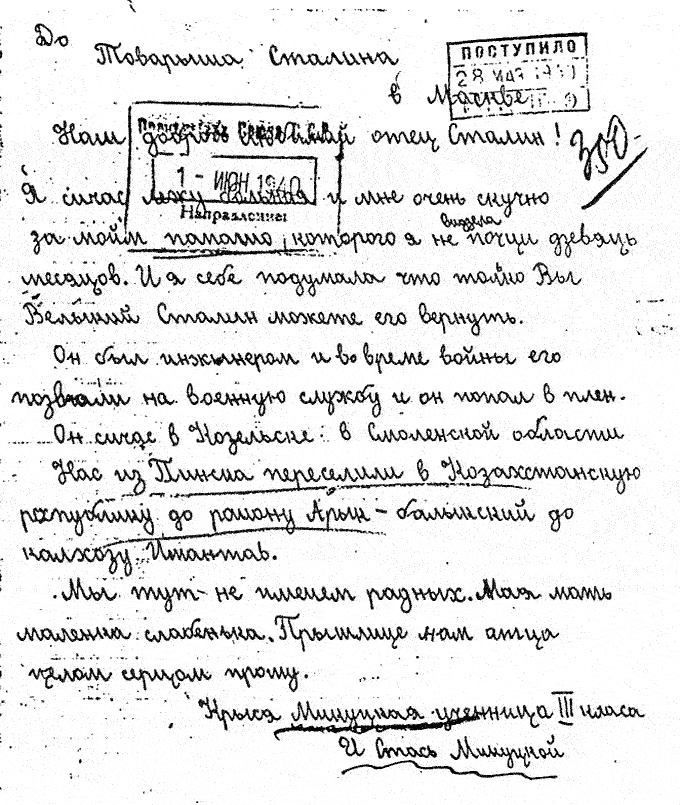 До
Товарыша Сталина
в Москве
ПОСТУПИЛО
28 МАЯ 1940
Наш добрый любимый отец Сталин!
350
1 - ИЮН 1940
Направление
Я сичас лежу больная и мне очень скучно
видела
за моим папашо, которого я не почци дзевяць
месяцов. И я себе подумала что толко Вы
Велький Сталин можете его вернуть.
Он был инжынером и во време войны его
позвали на военную службу и он попал в плен.
Он сичас в Козельске в Смоленской области
Нас из Пинска переселили в Козахстанскую
рэспублику до району Арык-балыкский до
калхозу Имантав.
Мы тут не имеем радных. Мая мать
маленка слабенька. Прышлице нам атца
целом серцом прошу.
Крыся Микуцкая ученница III класа
И Стась Микуцкой